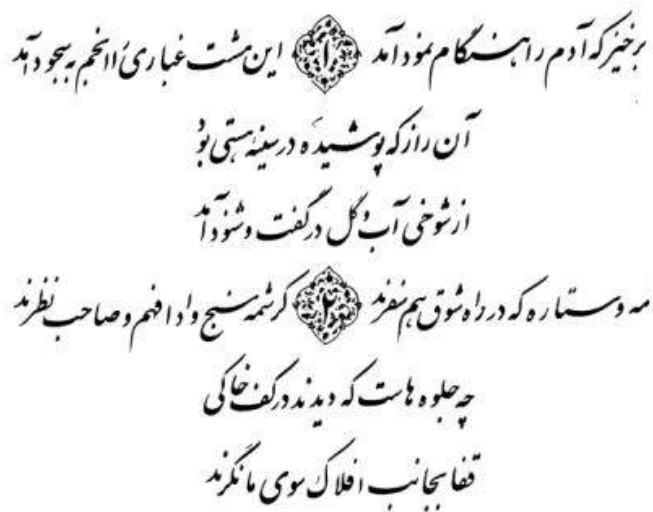 برخیز که آدم را هنگام نمود آمد ۱ این مشت غباری را انجم به سجود آمد
آن راز که پوشیده در سینهٔ هستی بود
از شوخی آب و گل در گفت و شنود آمد
مه و ستاره که در راه شوق هم سفرند ۲ کرشمه سنج و ادا فهم و صاحب نظرند
چه جلوه هاست که دیدند در کف خاکی
قفا بجانب افلاک سوی ما نگرند